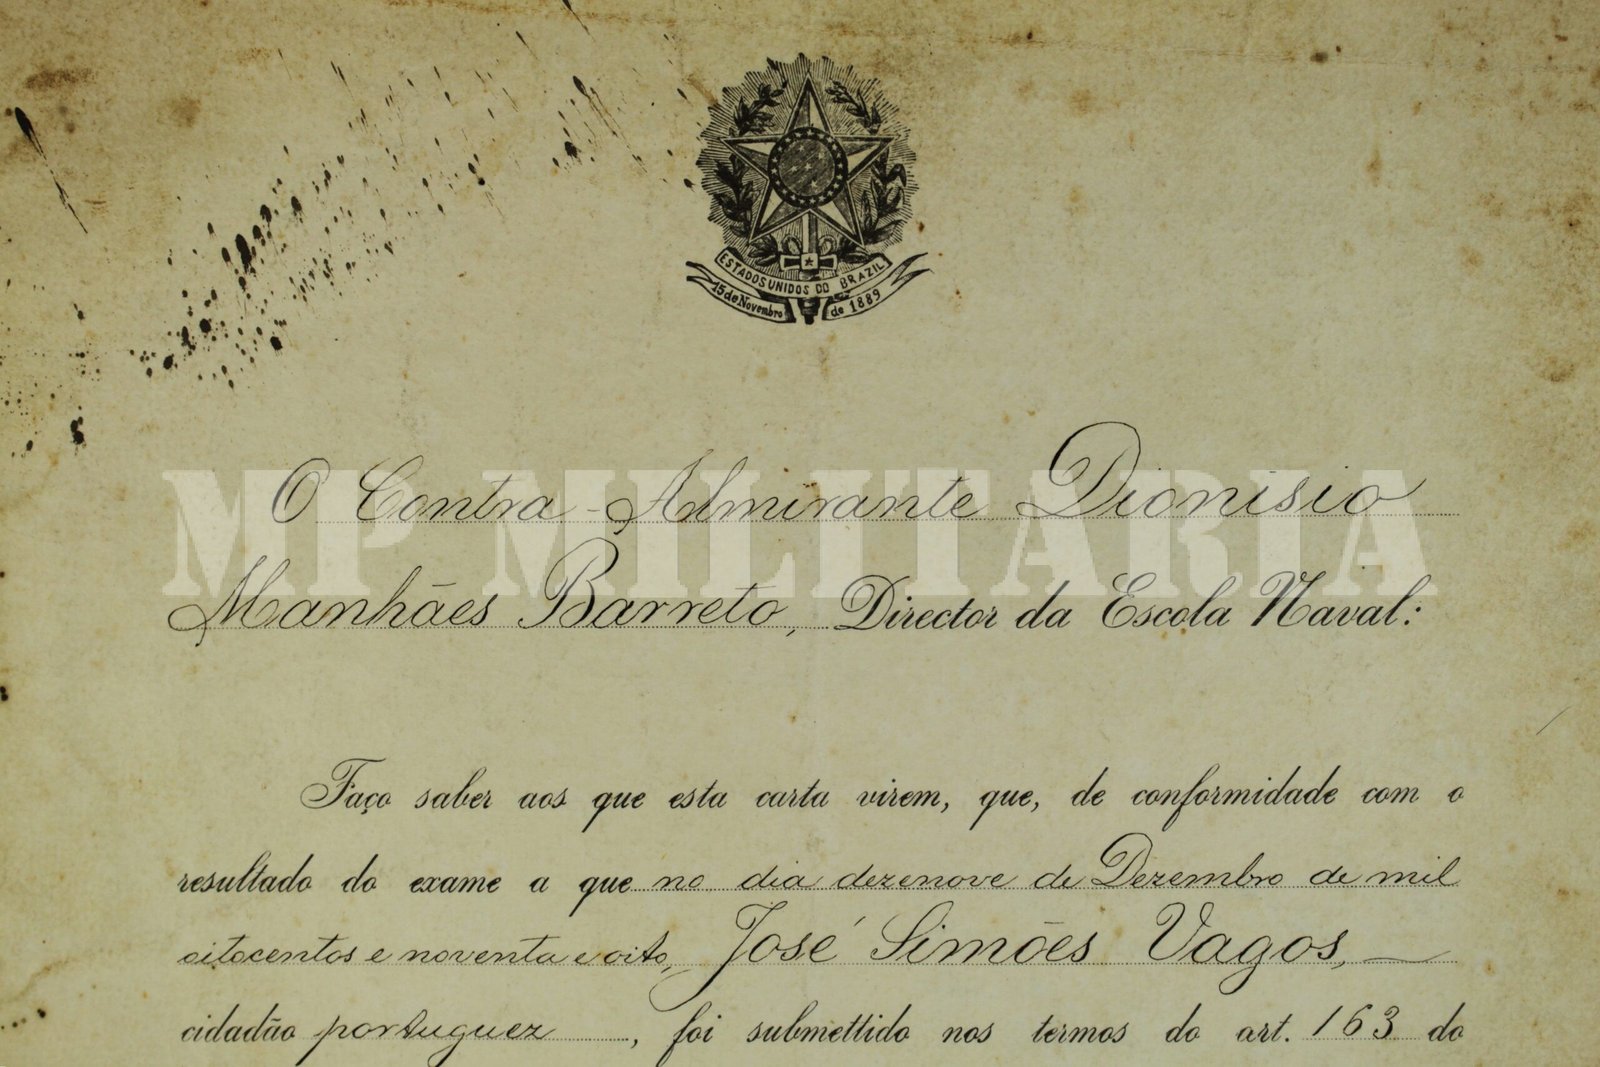 ESTADOS UNIDOS DO BRAZIL
15 de Novembro de 1889
MP MILITARIA
O Contra-Almirante Dionisio
Manhães Barreto, Director da Escola Naval:
Faço saber aos que esta carta virem, que, de conformidade com o
resultado do exame a que no dia dezenove de Dezembro de mil
oitocentos e noventa e oito, José Simões Vagos,
cidadão portuguez, foi submettido nos termos do art. 163 do